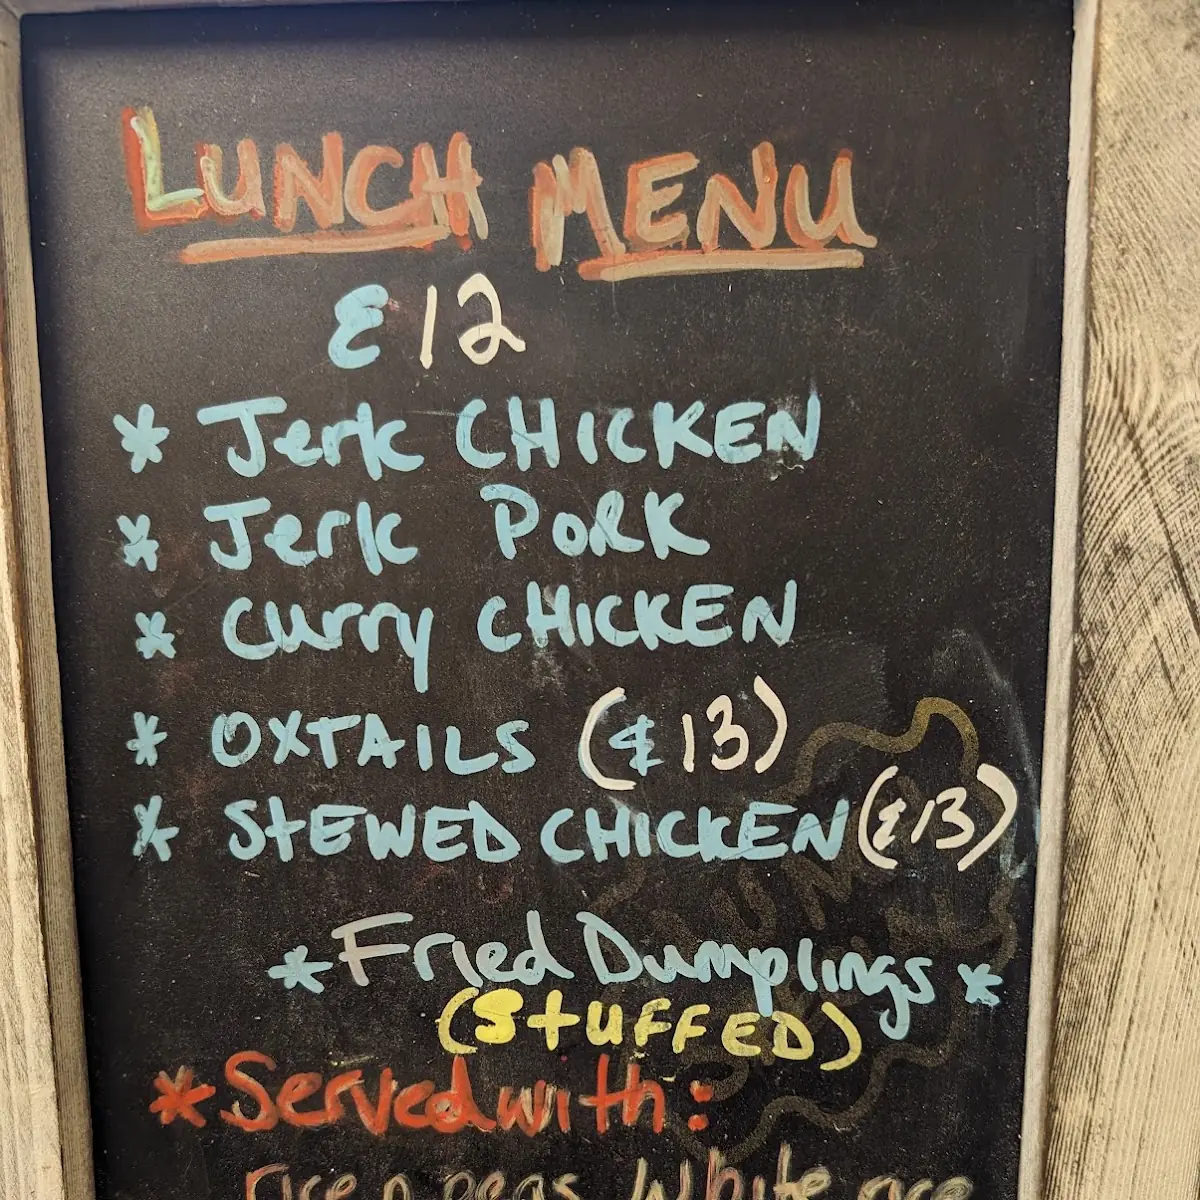 LUNCH MENU
£12
* Jerk CHICKEN
* Jerk PORK
* Curry CHICKEN
* OXTAILS (£13)
* STEWED CHICKEN (£13)
* Fried Dumplings *
(STUFFED)
* Served with:
rice n peas / White rice